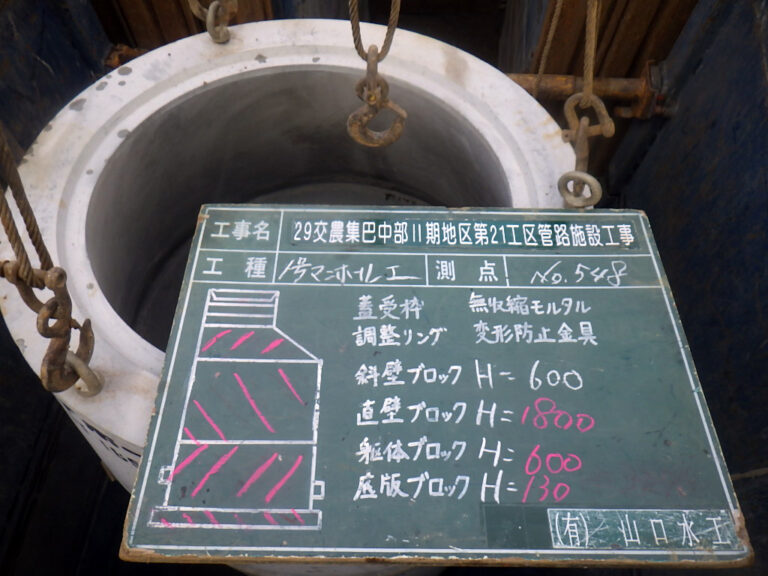 工事名 29交農集巴中部II期地区第21工区管路施設工事
工種 1号マンホール工 測点 No.548
蓋受枠 無収縮モルタル
調整リング 変形防止金具
斜壁ブロック H=600
直壁ブロック H=1800
躯体ブロック H=600
底版ブロック H=130
(有) 山口水工